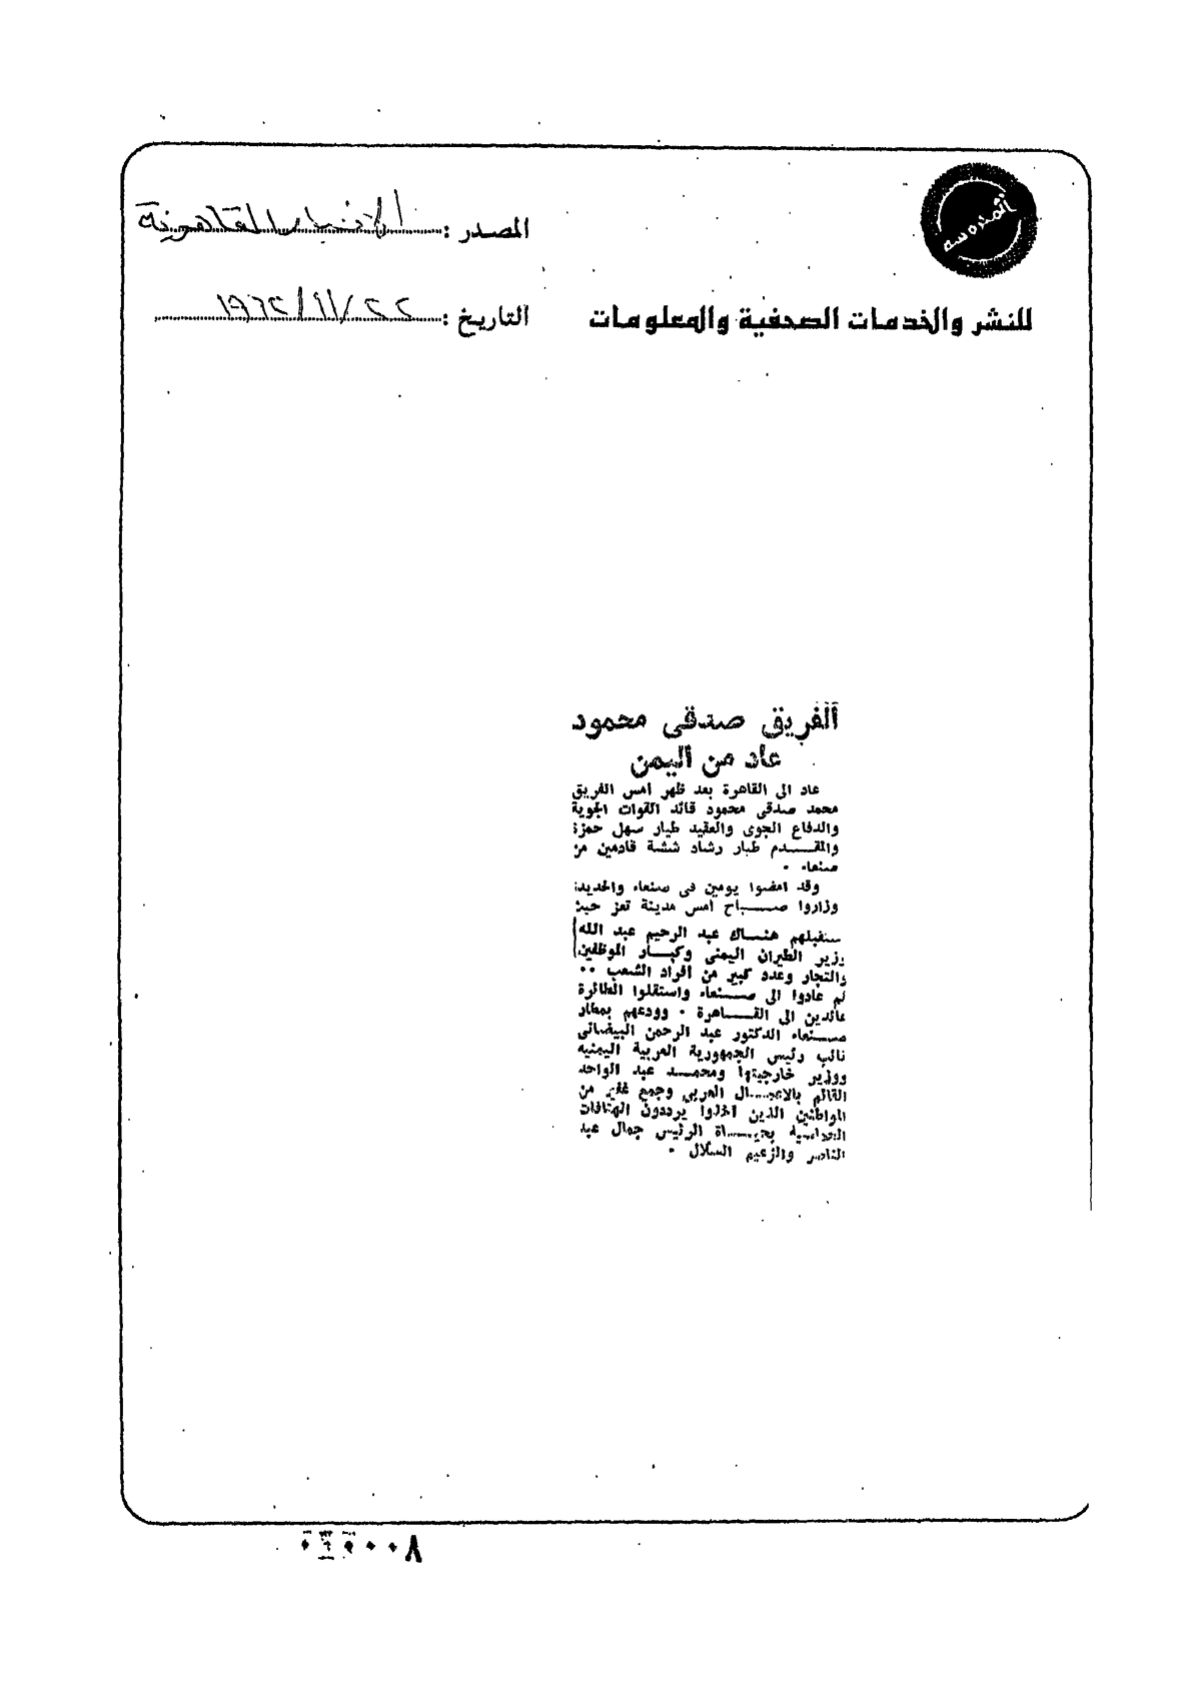 المحروسة
المصدر : الاخبار القاهرية
للنشر والخدمات الصحفية والمعلومات
التاريخ : ٢٢/١١/١٩٦٢
الفريق صدقى محمود
عاد من اليمن
عاد الى القاهرة بعد ظهر امس الفريق
محمد صدقى محمود قائد القوات الجوية
والدفاع الجوى والعقيد طيار سهل حمزة
والمقدم طيار رشاد ششة قادمين من
صنعاء .
وقد امضوا يومين فى صنعاء والحديدة
وزاروا صباح امس مدينة تعز حيث
ستقبلهم هناك عبد الرحيم عبد الله
وزير الطيران اليمنى وكبار الموظفين
والتجار وعدد كبير من افراد الشعب ..
ثم عادوا الى صنعاء واستقلوا الطائرة
عائدين الى القاهرة . وودعهم بمطار
صنعاء الدكتور عبد الرحمن البيضانى
نائب رئيس الجمهورية العربية اليمنية
ووزير خارجيتها ومحمد عبد الواحد
القائم بالاعمال العربى وجمع غفير من
المواطنين الذين اخذوا يرددون الهتافات
بحياة الرئيس جمال عبد
الناصر والزعيم السلال .